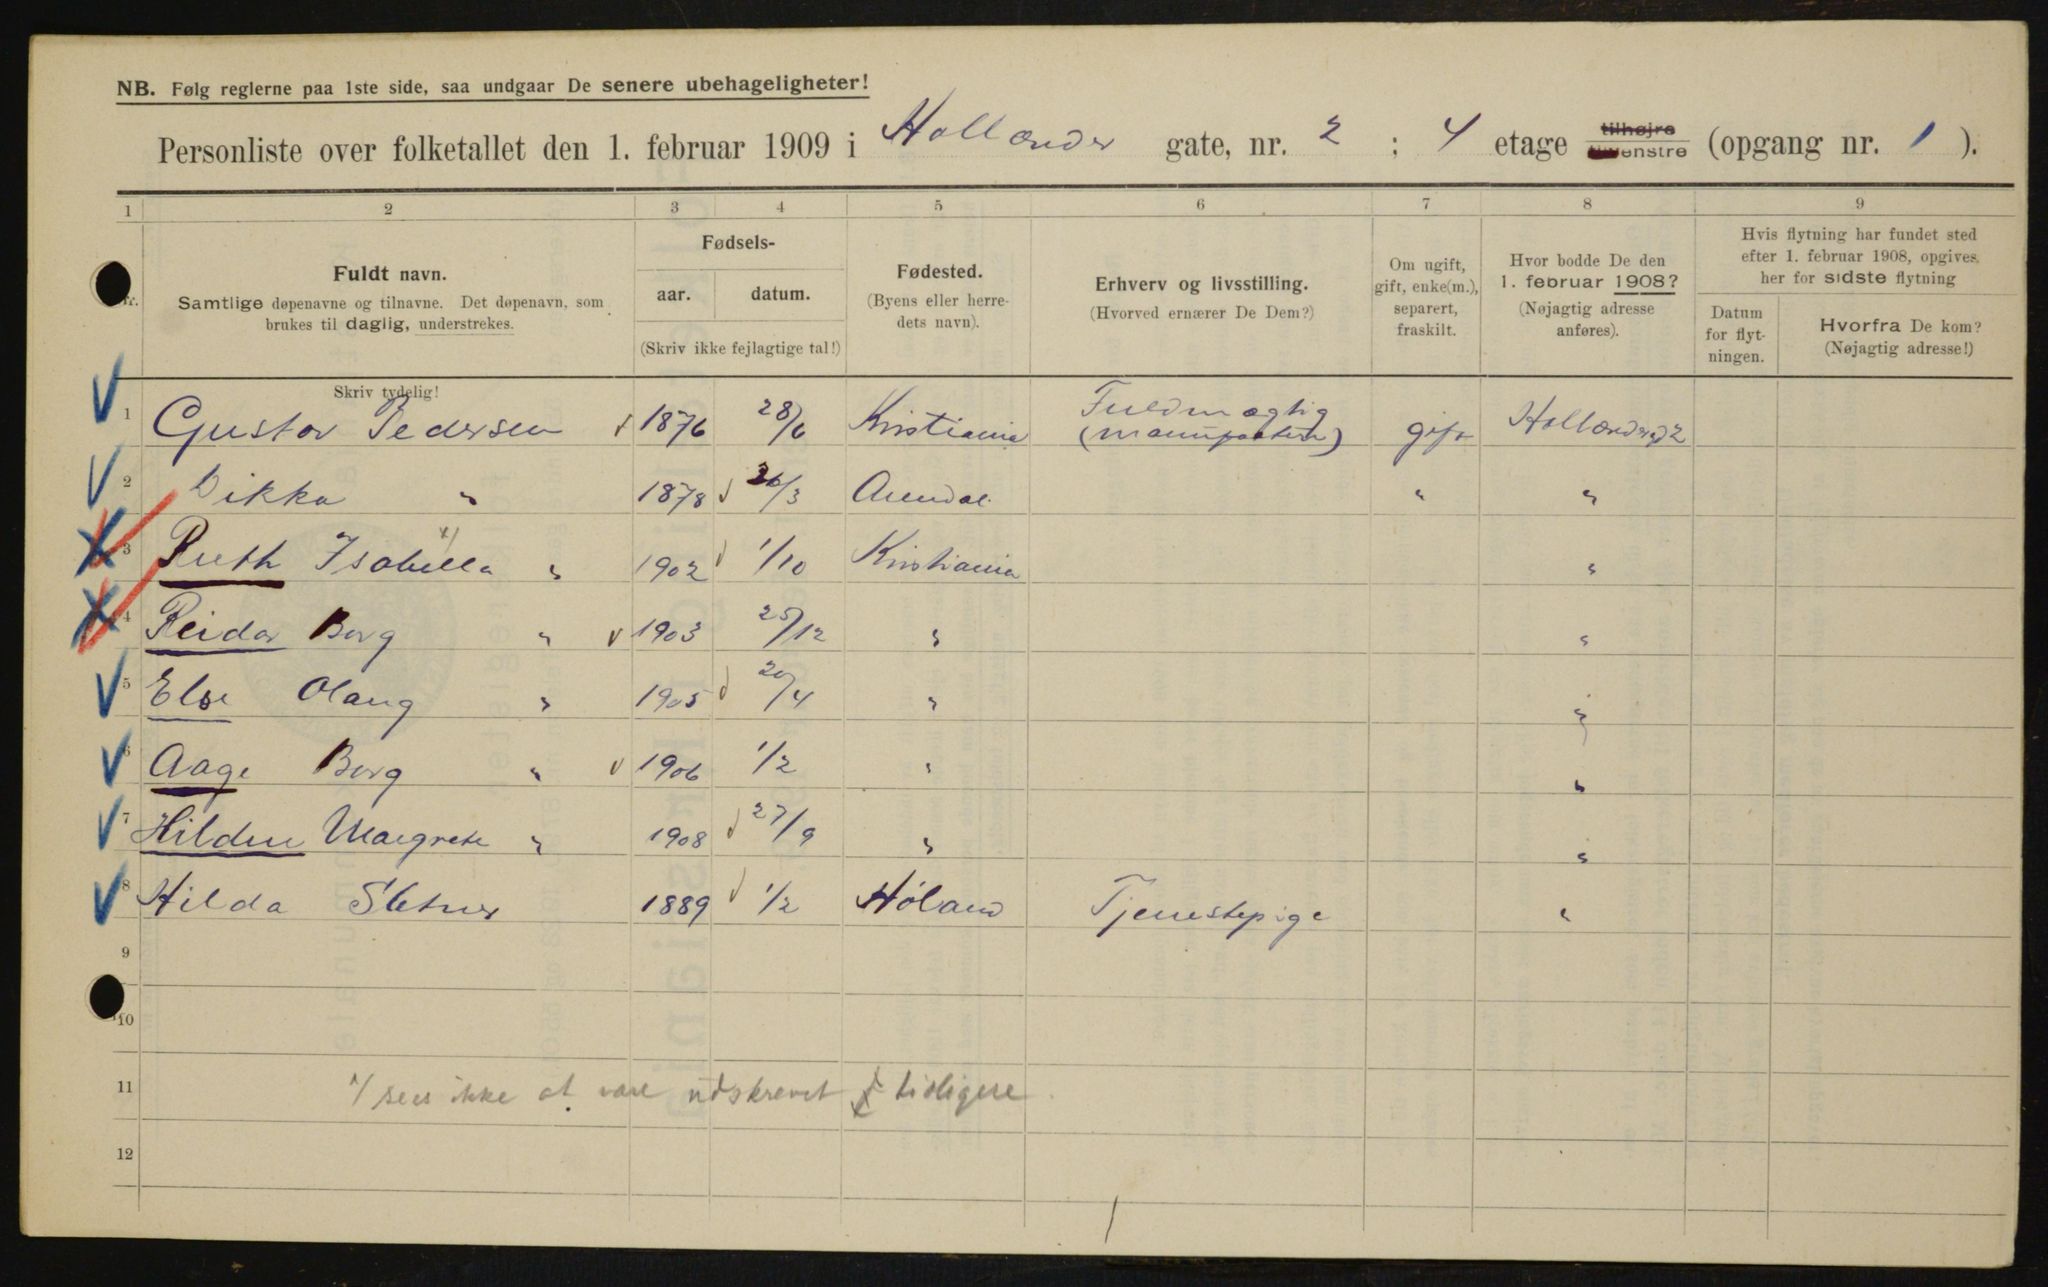 NB. Følg reglerne paa 1ste side, saa undgaar De senere ubehageligheter!
Personliste over folketallet den 1. februar 1909 i Hollænder gate, nr. 2 ; 4 etage tilhøjre venstre (opgang nr. 1 ).
1 2 3 4 5 6 7 8 9
Nr.
Fuldt navn.
Samtlige døpenavne og tilnavne. Det døpenavn, som
brukes til daglig, understrekes.
Skriv tydelig!
Fødsels-
aar. datum.
(Skriv ikke fejlagtige tal!)
Fødested.
(Byens eller herre-
dets navn).
Erhverv og livsstilling.
(Hvorved ernærer De Dem?)
Om ugift,
gift, enke(m.),
separert,
fraskilt.
Hvor bodde De den
1. februar 1908?
(Nøjagtig adresse
anføres).
Hvis flytning har fundet sted
efter 1. februar 1908, opgives
her for sidste flytning
Datum
for flyt-
ningen.
Hvorfra De kom?
(Nøjagtig adresse!)
1 Gustav Pedersen 1876 28/6 Kristiania Fuldmægtig (manufaktur) gift Hollænderg 2
2 Dikka " 1878 /3 Arendal " "
3 Ruth Isabella x) " 1902 1/10 Kristiania "
4 Reidar Borg " 1903 25/12 " "
5 Else Olaug " 1905 20/4 " "
6 Aage Borg " 1906 1/2 " "
7 Hildur Margrete " 1908 27/9 " "
8 Hilda Sletner 1889 1/2 Høland Tjenestepige "
9
10
11 x/ sees ikke at være udskrevet tidligere
12